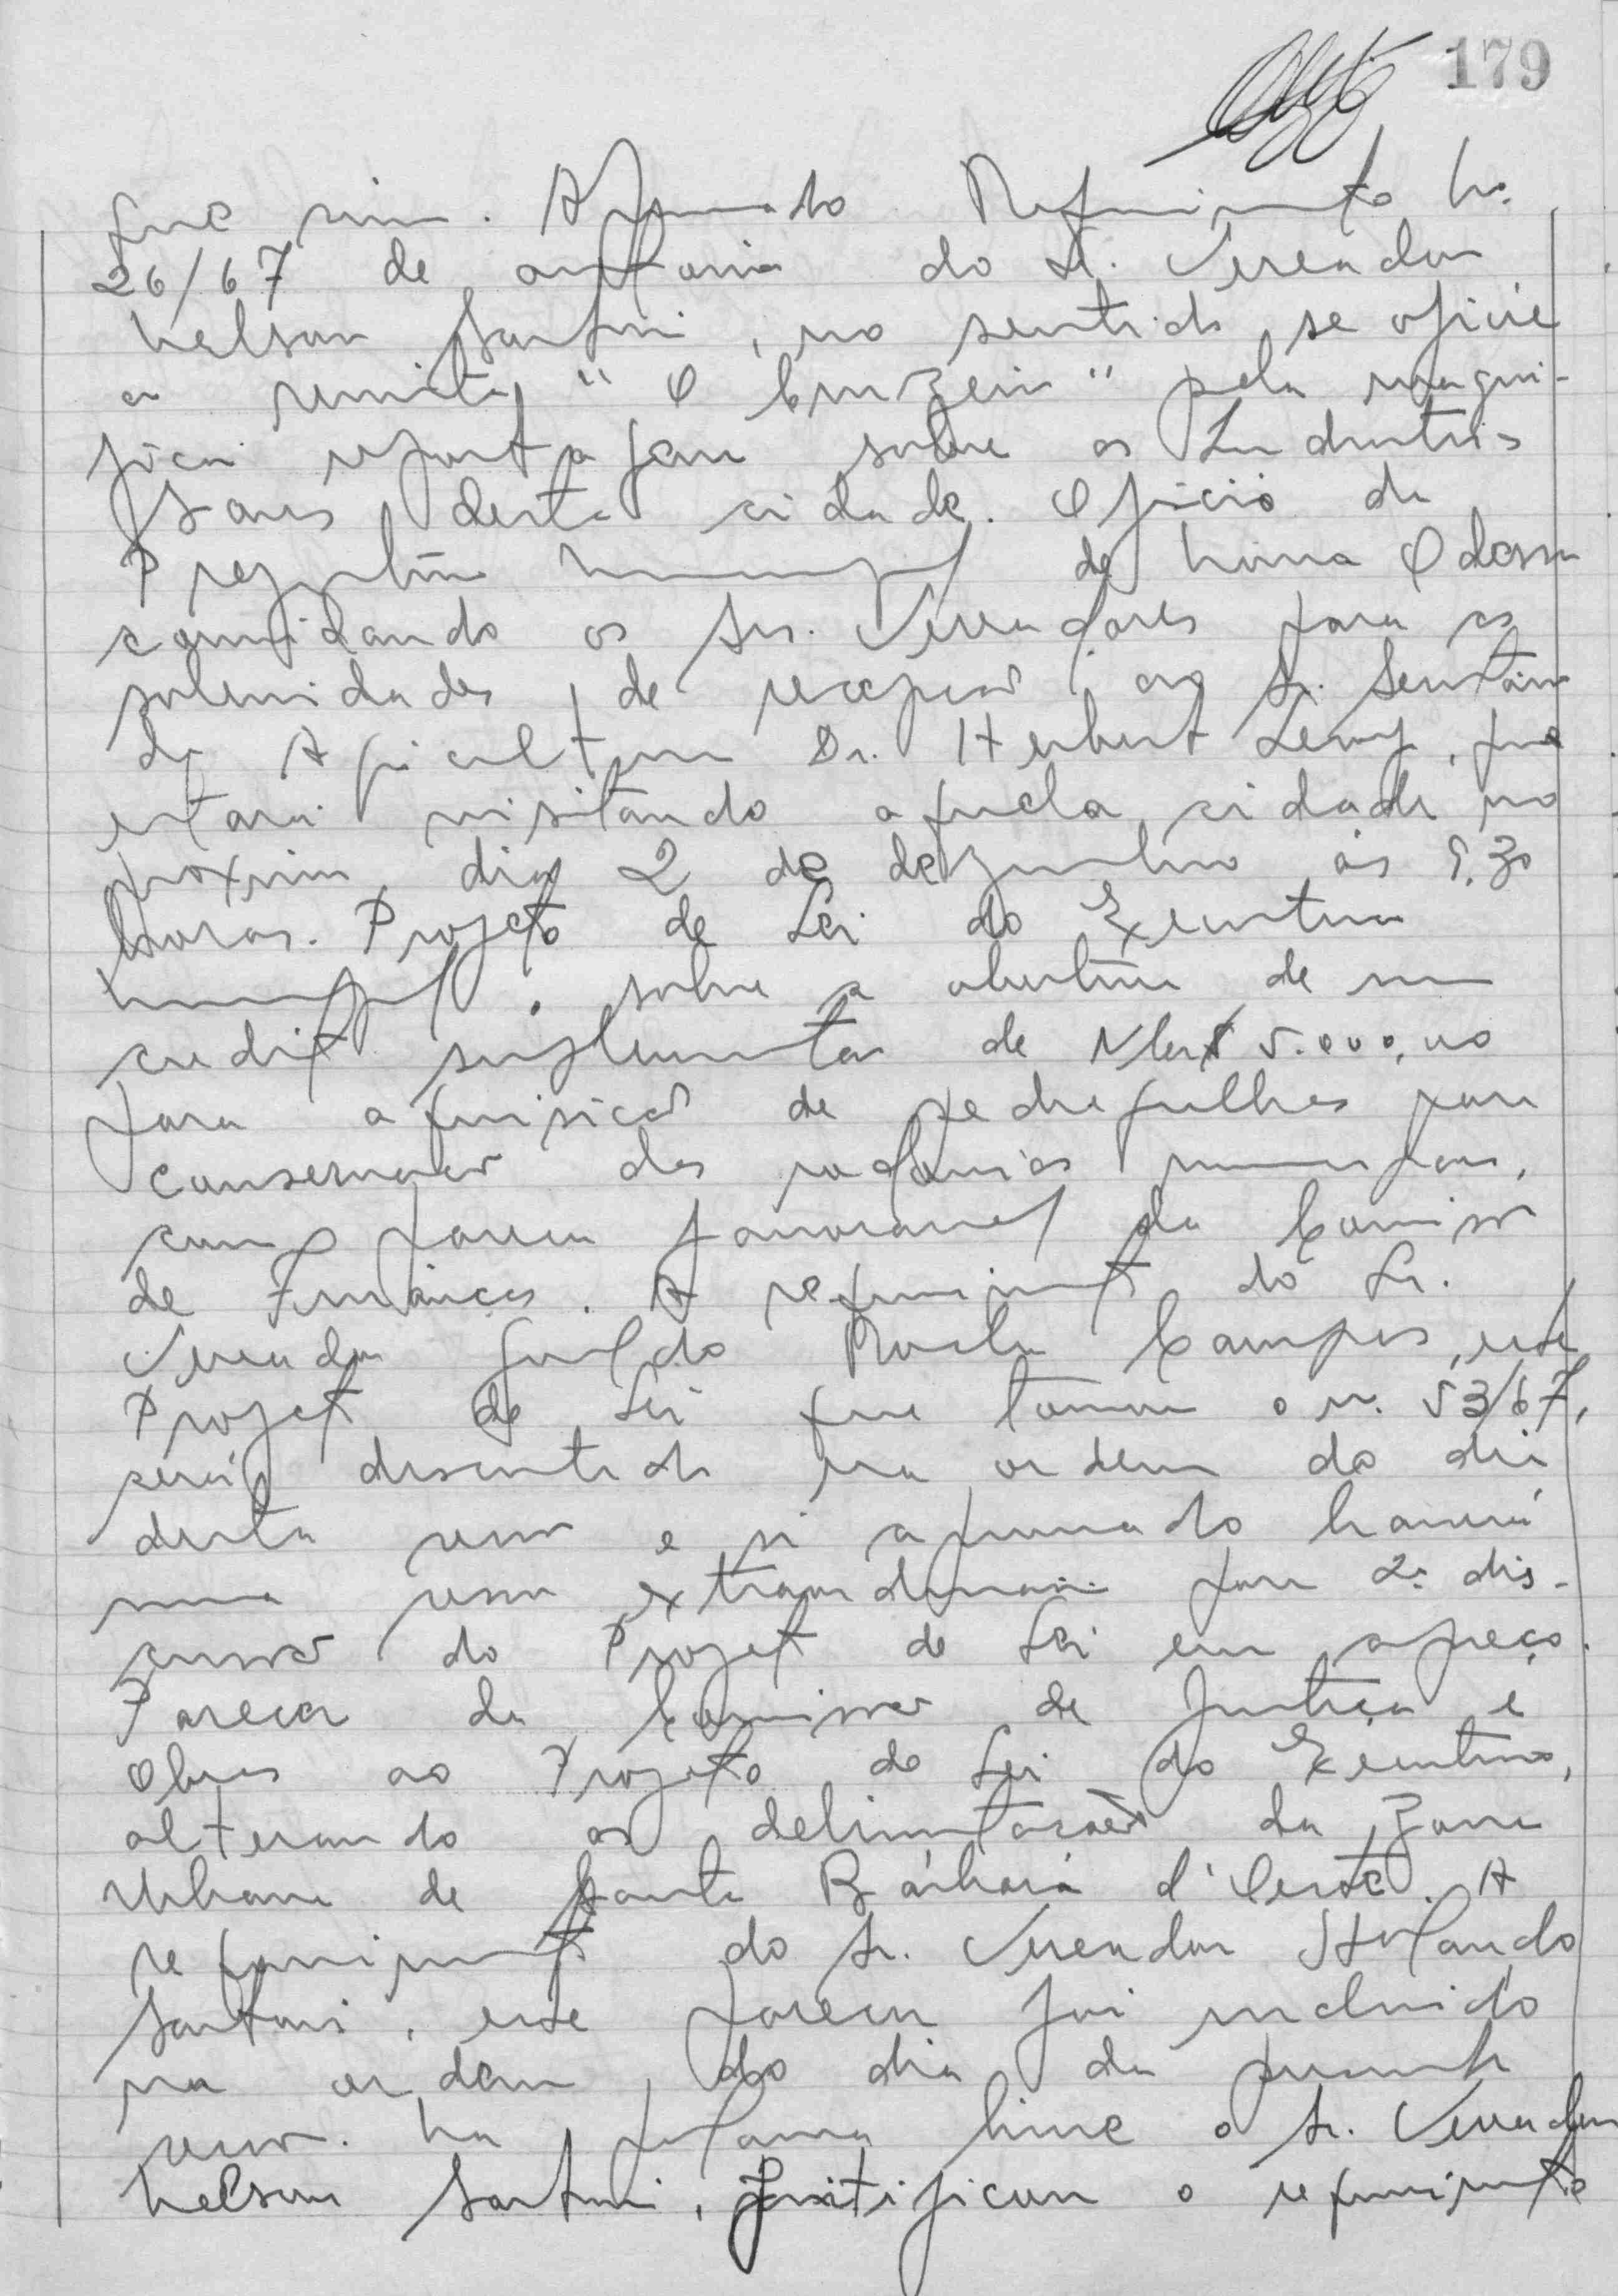 179
que sim. Aprovado Requerimento No.
26/67 de autoria do Sr. Vereador
Nelson Sartori, no sentido se oficie
a revista "O Cruzeiro" pela magni-
fica reportagem sobre as Industrias
desta cidade. Oficio da
Prefeitura Municipal de Nova Odessa
convidando os Srs. Vereadores para as
solenidades de recepção ao Sr. Secretário
da Agricultura Dr. Herbert Levy, que
estará visitando aquela cidade no
proximo dia 2 de dezembro às 9,30
horas. Projeto de Lei do Executivo
Municipal, sobre a abertura de um
credito suplementar de NCr$ 5.000,00
para aquisição de pedregulhos para
conservação das rodovias municipais,
com parecer favoravel da Comissão
de Finanças. A requerimento do Sr.
Vereador Campos, este
Projeto de Lei que tomou o n. 53/67,
será discutido na ordem do dia
desta sessão e si aprovado haverá
uma sessão extraordinaria para 2a. dis-
cussão do Projeto de Lei em apreço.
Parecer da Comissão de Justiça e
Obras ao Projeto de Lei do Executivo,
alterando as delimitações da zona
Urbana de Santa Bárbara d'Oeste. A
requerimento do Sr. Vereador
Sartori, este parecer foi incluido
na ordem do dia da presente
sessão. Na palavra livre o Sr. Vereador
Nelson Sartori, justificou o requerimento